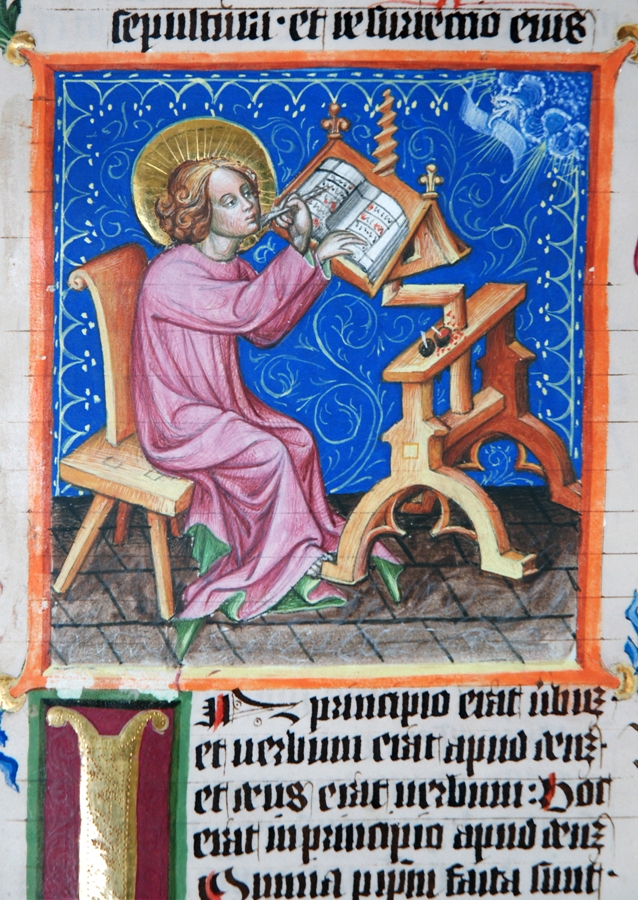 sepultura · et resurrectio eius
In principio erat ubū ·
et uerbum erat apud deū ·
et deus erat uerbum : Hoc
erat in principio apud deū
Omnia p ip̄m facta sunt ·